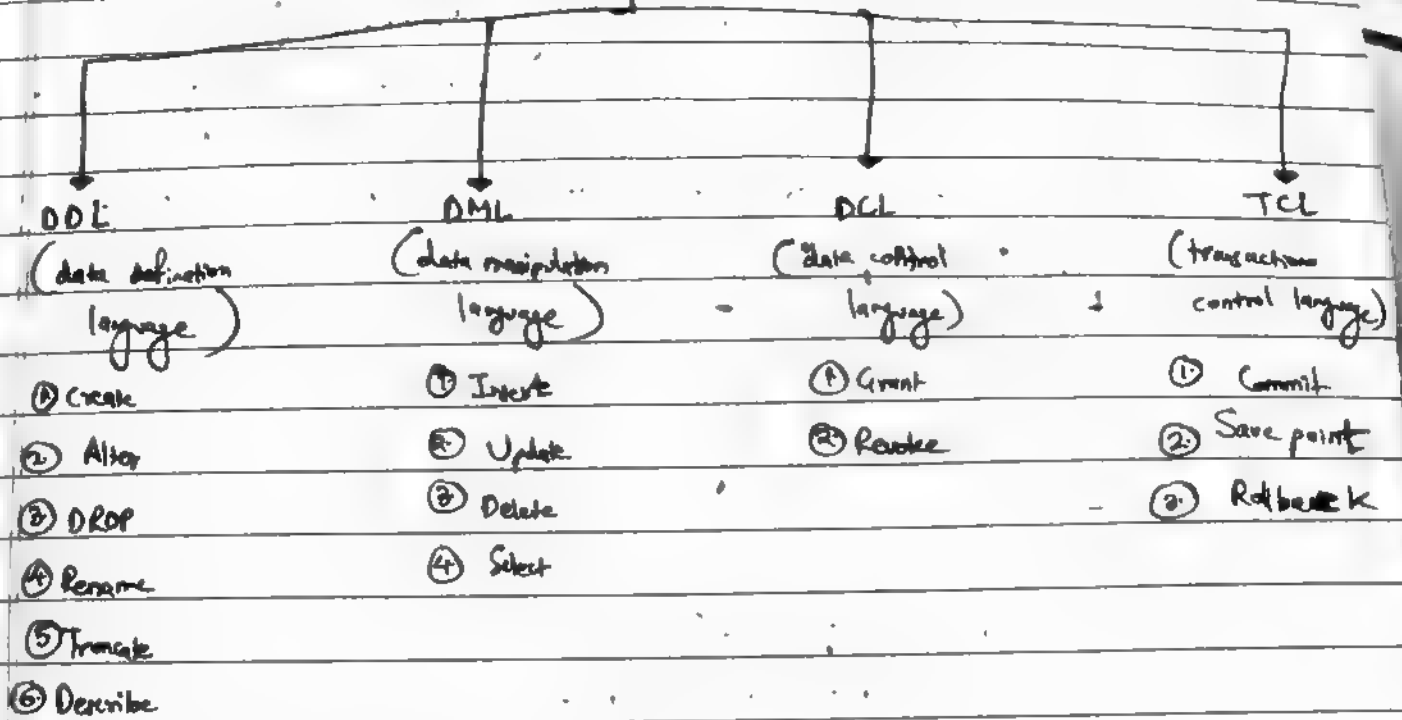 DDL
(data defination
language)
① Create
② Alter
③ DROP
④ Rename
⑤ Truncate
⑥ Describe
DML
(data manipulation
language)
① Inserte
② Update
③ Delete
④ Select
DCL
(data control
language)
① Grant
② Revoke
TCL
(transaction
control language)
① Commit
② Save point
③ Rollback